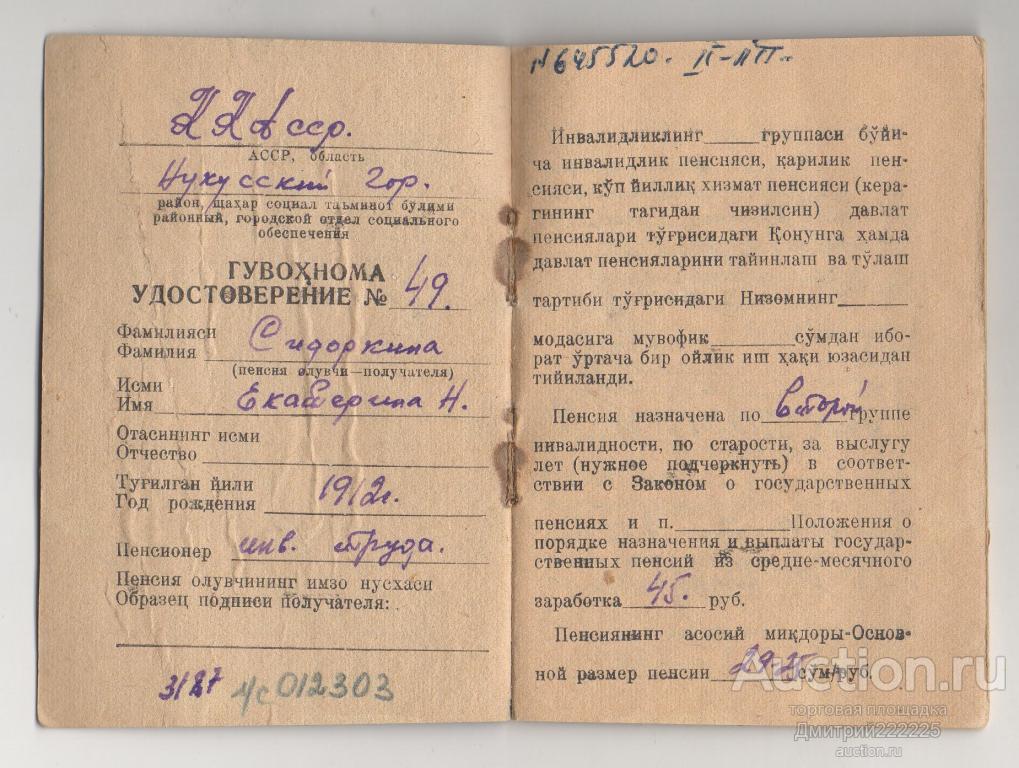 ККАсср.
АССР, область
Нукусский гор.
район, шаҳар социал таъминот бўлими
районный, городской отдел социального
обеспечения
ГУВОҲНОМА
УДОСТОВЕРЕНИЕ № 49.
Фамилияси
Фамилия Сидоркина
(пенсия олувчи—получателя)
Исми
Имя Екатерина Н.
Отасининг исми
Отчество
Туғилган йили
Год рождения 1912г.
Пенсионер инв. труда.
Пенсия олувчининг имзо нусхаси
Образец подписи получателя:
3/27 ч/с 012303
№645520. II-ИТ.
Инвалидликлинг группаси бўйи-
ча инвалидлик пенсяси, қарилик пен-
сияси, кўп йиллиқ хизмат пенсияси (кера-
гининг тагидан чизилсин) давлат
пенсиялари тўғрисидаги Қонунга ҳамда
давлат пенсияларини тайинлаш ва тўлаш
тартиби тўғрисидаги Низомнинг
модасига мувофик сўмдан ибо-
рат ўртача бир ойлик иш ҳақи юзасидан
тийиланди.
Пенсия назначена по второй группе
инвалидности, по старости, за выслугу
лет (нужное подчеркнуть) в соответ-
ствии с Законом о государственных
пенсиях и п. Положения о
порядке назначения и выплаты государ-
ственных пенсий из средне-месячного
заработка 45. руб.
Пенсиянинг асосий миқдоры-Основ-
ной размер пенсии 29-25 сўм/руб.
Auction.ru
торговая площадка
Дмитрий222225
auction.ru